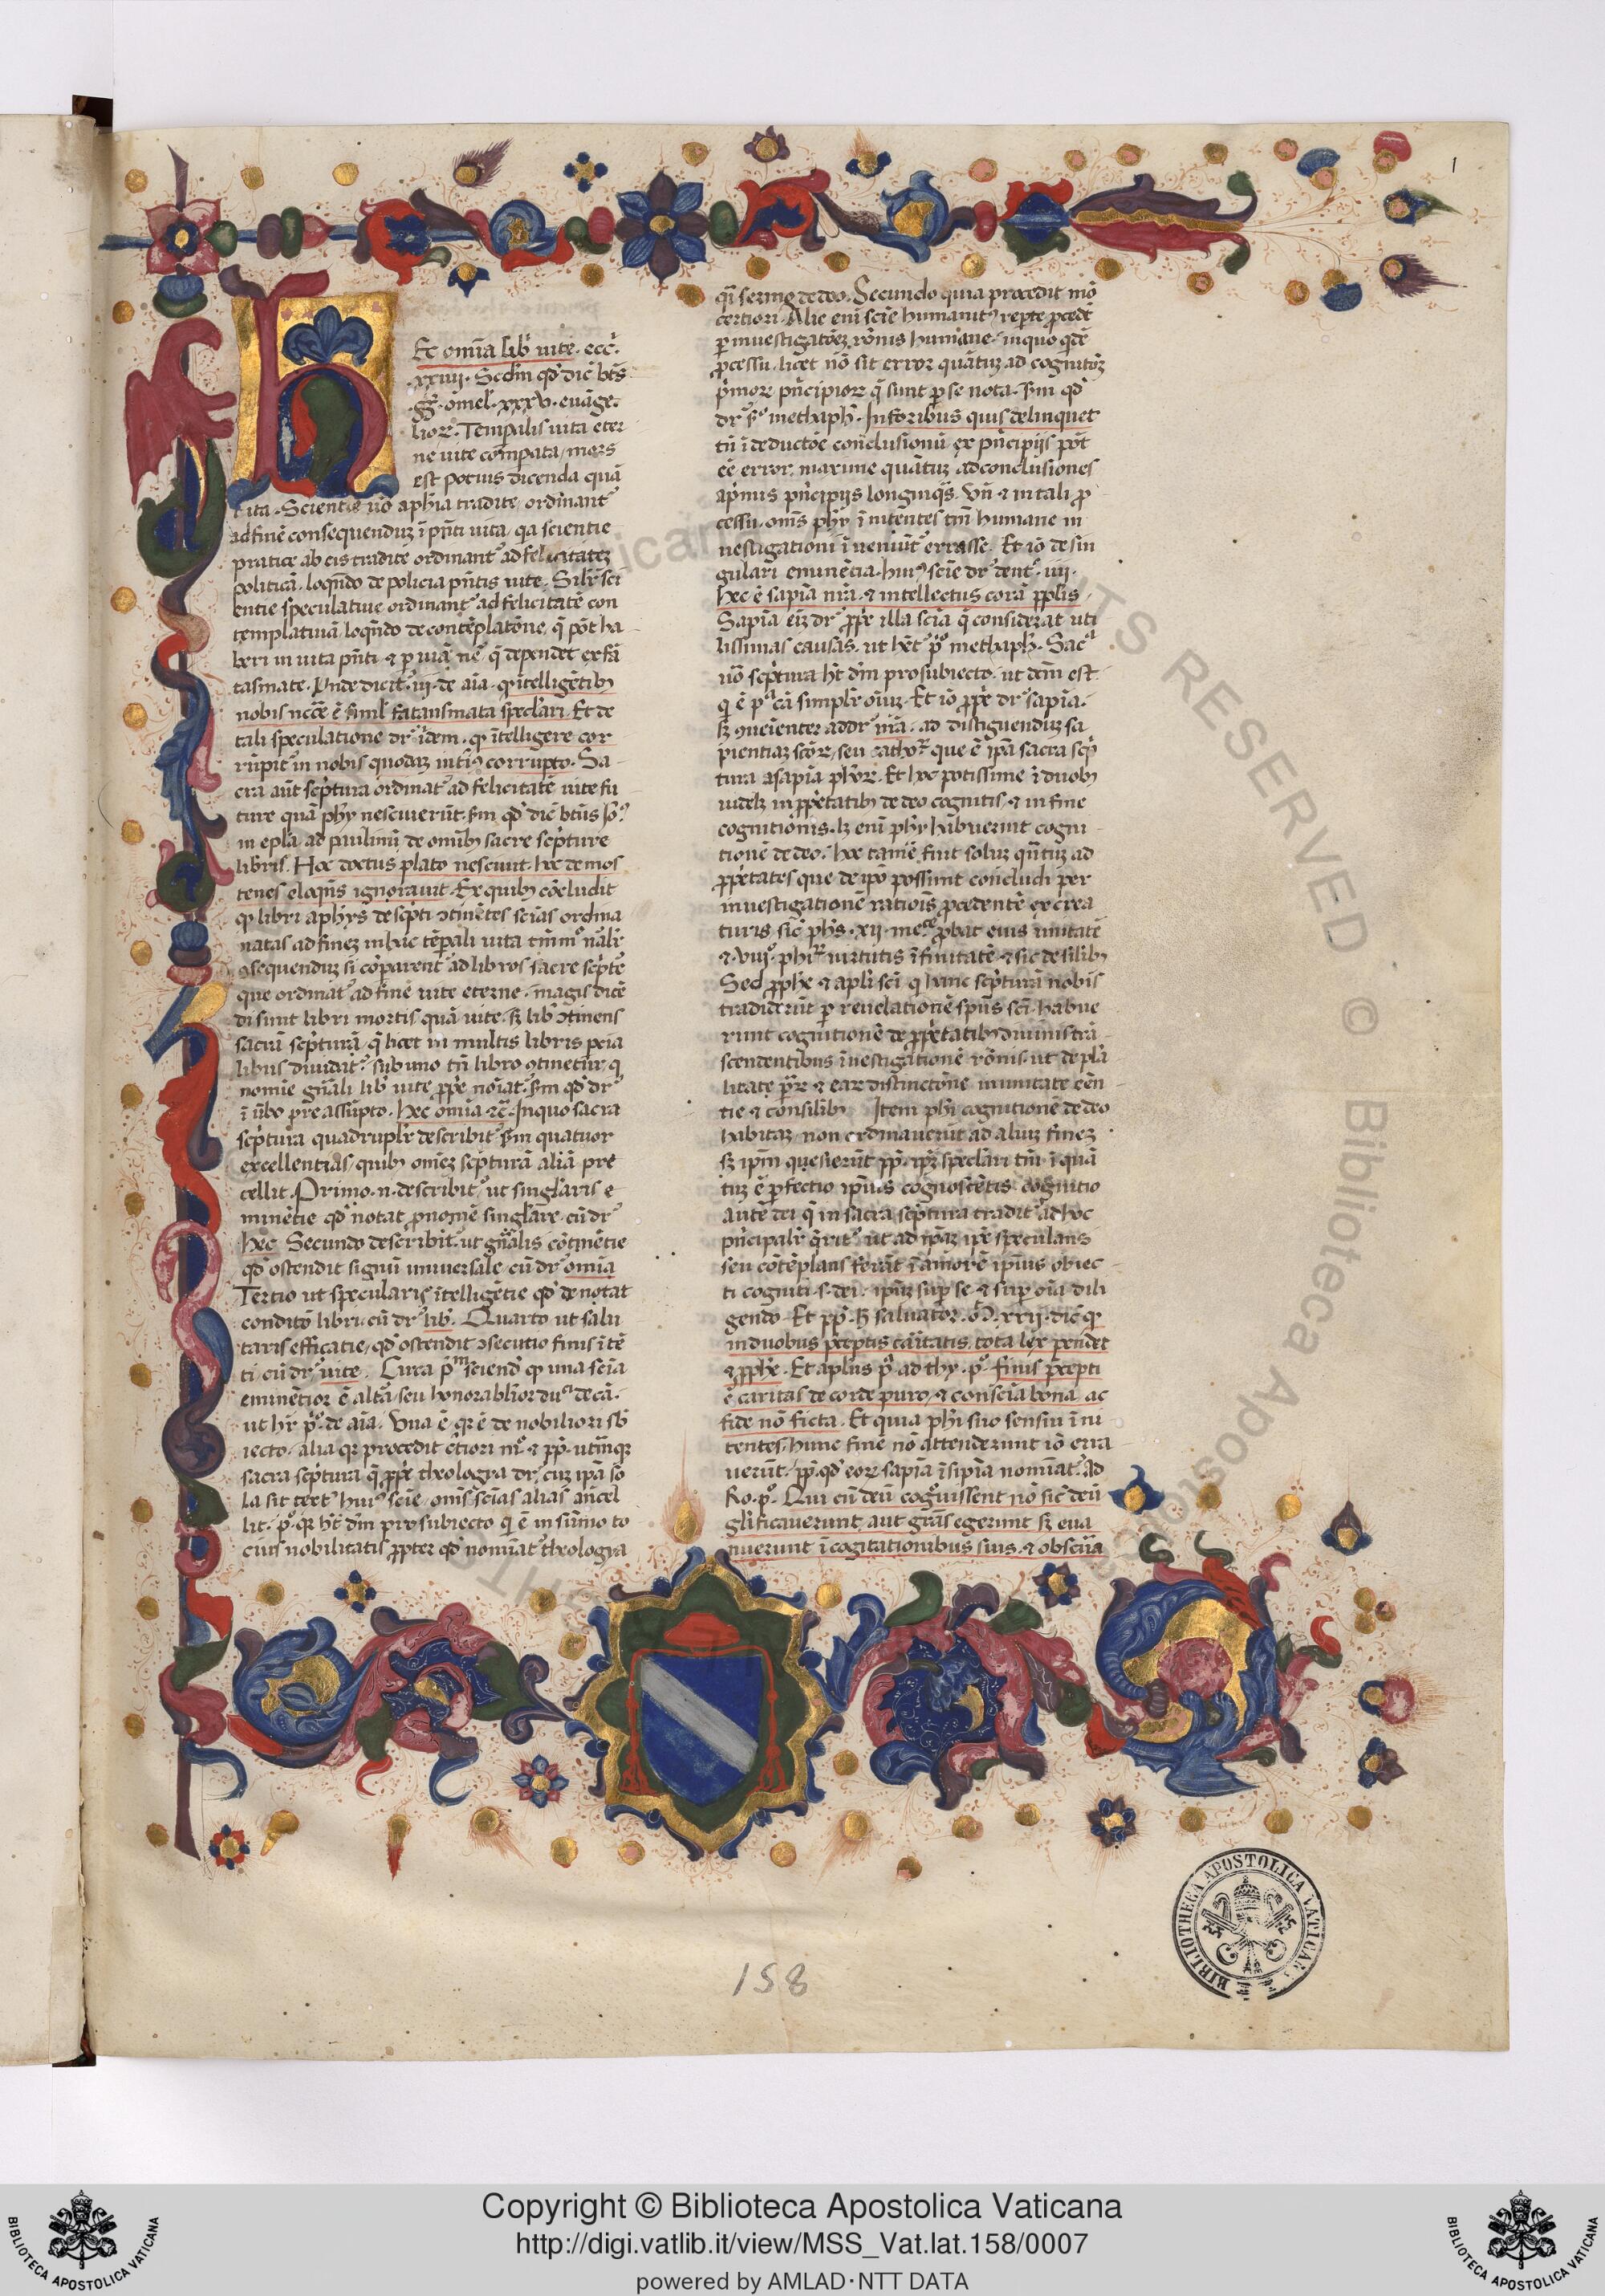 1
Hec omia lib̃ uite. ecc̃.
xxiiii. Scdm qd dic̃ bt̃s
.gg̃. omel. xxxv. euãge.
lior. Temp̃alis uita eter
ne uite compata, mors
est potius dicenda quã
uita. Scientie uõ aphĩa tradite, ordinant
ad finẽ consequenduz ĩ pñti uita, qa scientie
pratice ab eis tradite ordinant ad felicitatez
politicã, loqñdo de policia pñtis uite. Silr̃ sci
entie speculatiue ordinant ad felicitatẽ con
templatiuã, loqñdo de contẽplatõne, q̃ põt ha
beri in uita pñti, & p uiã nẽ, q̃ dependet ex fã
tasmate. Vnde dicit .iii. de aĩa. q̃ ĩtelligẽtib
nobis necc̃e ẽ siml̃ fatansmata spec̃lari. Et de
tali speculatione dr̃ idem. q̃ ĩtelligere cor
rũpit in nobis quodaz inti9 corrupto. Sa
cra aũt scp̃tura ordinat ad felicitatẽ uite fu
ture quã phỹ nesciuerũt. sm̃ qd dic̃ btũs Jo.
in epl̃a ad paulinũ de omĩb sacre scp̃ture
libris. Hoc doctus plato nesciuit. hoc demos
tenes eloqñs ignorauit. Ex quib cõcludit
q̃ libri aphỹs descp̃ti ɔtinẽtes scĩas ordina
natas ad finez in hac tẽpali uita tm̃mo nal̃r
ɔsequenduz si cõparent ad libros sacre scp̃te
que ordinat ad finẽ uite eterne. magis dicẽ
di sunt libri mortis quã uite. sz lib̃ ɔtinens
sacrã scp̃turã, q̃ licet in multis libris pcia
libus diuidat. sub uno tñ libro ɔtinetur, q̃
nomĩe gñali lib̃ uite p̃p̃e noĩat. sm̃ qd dr̃
ĩ ũbo preassũpto. hec omia &c̃. Inquo sacra
scp̃tura quadruplr̃ describit sm̃ quatuor
excellentias, quib omẽz scp̃turã aliã pre
cellit. Primo .n. describit ut singl̃aris e
minẽtie qd notat pronomẽ singl̃are, cũ dr̃
hec. Secundo describit ut gñalis cõtinẽtie
qd ostendit signũ uniuersale, cũ dr̃ omia
Tertio ut specularis ĩtelligẽtie qd denotat
conditõ libri, cũ dr̃ lib̃. Quarto ut salu
taris efficatie, qd ostendit ɔsecutio finis ĩtẽ
ti, cũ dr̃ uite. Circa pm̃ sciend q̃ una scĩa
eminẽtior ẽ altã, seu honorabl̃ior du9 de cã.
ut hr̃ po. de aĩa. Vna ẽ, qr ẽ de nobiliori sb̃
iecto, alia qr procedit cẽtiori mo. & pp̃. utrũq
sacra scp̃tura q̃ p̃p̃e theologia dr̃, cuz ipã so
la sit cert9 hui9 scĩe, omĩs scĩas alias añcel
lit. po. qr hr̃ dm̃ pro subiecto q ẽ in sũmo to
cius nobilitatis p̃pter qd nomĩat theologia
q̃i sermo de deo. Secundo quia procedit mõ
certiori. Alie enĩ scĩe humanit9 repte pcedẽt
p inuestigatõez rõnis humane, inquo qdẽ
pcessu, licet nõ sit error quãtuz ad cognitõz
p̃mor pñcipior q̃ sunt p se nota. sm̃ qd
dr̃ 2o methaph. Inforibus quis delinquet
tñ ĩ deductõe conclusionũ ex pñcipijs põt
eẽ error, maxime quãtuz ad conclusiones
ap̃mis pñcipijs longinq̃s. Vñ & in tali p
cessu, omĩs phỹ ĩ nitẽntes tm̃ humane in
uestigationi ĩueniũt errasse. Et iõ de sin
gulari eminẽcia, hui9 scĩe dr̃ deut. iiii.
hec ẽ sapĩa nr̃a, & intellectus corã pp̃lis.
Sapĩa eiz dr̃ p̃p̃e illa scĩa q̃ considerat uti
lissimas causãs. ut hẽt po methaph. Sac
uõ scp̃tura hr̃ dm̃ pro subiecto, ut dem̃ est
q̃ ẽ pa cã simplr̃ oiuz. Et iõ p̃p̃e dr̃ sapĩa.
sz ɔueiẽnter addr̃ nr̃a, ad distiguenduz sa
pientiaz scõr, seu cathor que ẽ ipã sacra scp̃
tura asapĩa phõr. Et hoc potissime ĩ duob
uidelz in pp̃etatib de deo cognitis, & in fine
cognitionis. lz enĩ phỹ hĩbuerint cogni
tionẽ de deo. hoc tamẽ fuit soluz qñtuz ad
pp̃etates que de ipõ possunt concludi per
inuestigationẽ ratiois pcedentẽ ex crea
turis, sic̃ phs̃. xij. me. pbat eius unitatẽ
&. viijo. phir uirtutis ĩfinitatẽ, & sic de silib
Sed p̃phe & apl̃i scĩ q hanc scp̃turã nobis
tradiderũt p reuelationẽ spũs scĩ. habue
runt cognitionẽ de pp̃etatib diuinis trã
scendentibus ĩuestigationẽ rõnis. ut de pl̃a
litate p̃r & ear distinctõne in unitate eẽn
tie & consilib. Item phĩ cognitionẽ de deo
habitaz, non ordinauerũt ad aliuz finez
sz ipm̃ quesierũt pp̃. ipz spec̃lari tm̃. ĩ quã
tuz ẽ pfectio ipiuis cognoscẽtis. cognitio
autẽ dei q̃ in sacra scp̃tura tradit ad hoc
pñcipalr̃ q̃rit, ut ad ipaz ipẽ speculans
seu cõtẽplans ferat ĩ amorẽ ipius obiec
ti cogniti .s. dei. ipuz sup se, & sup oĩa dili
gendo. Et pp̃. h̃ saluator. M. xxij. dic̃ q̃
in duobus p̃ceptis caritatis, tota lex pendet
& p̃phe. Et apl̃us p̃. ad thy. po. finis p̃cepti
ẽ caritas de corde puro, & conscĩa bona, ac
fide nõ ficta. Et quia phĩ suo sensui ĩni
tentes, hunc finẽ nõ attenderunt iõ erra
uerũt, pp̃. qd eor sapĩa ĩsipĩa nomĩat. Ad
Ro. po. Qui cũ deũ cogouissent nõ sic̃ deũ
glificauerunt, aut grãs egerunt sz eua
nuerunt ĩ cogitationibus suis, & obscũa
158
BIBLIOTHECA APOSTOLICA VATICANA
Copyright © Biblioteca Apostolica Vaticana
http://digi.vatlib.it/view/MSS_Vat.lat.158/0007
powered by AMLAD·NTT DATA
BIBLIOTECA APOSTOLICA VATICANA
BIBLIOTECA APOSTOLICA VATICANA